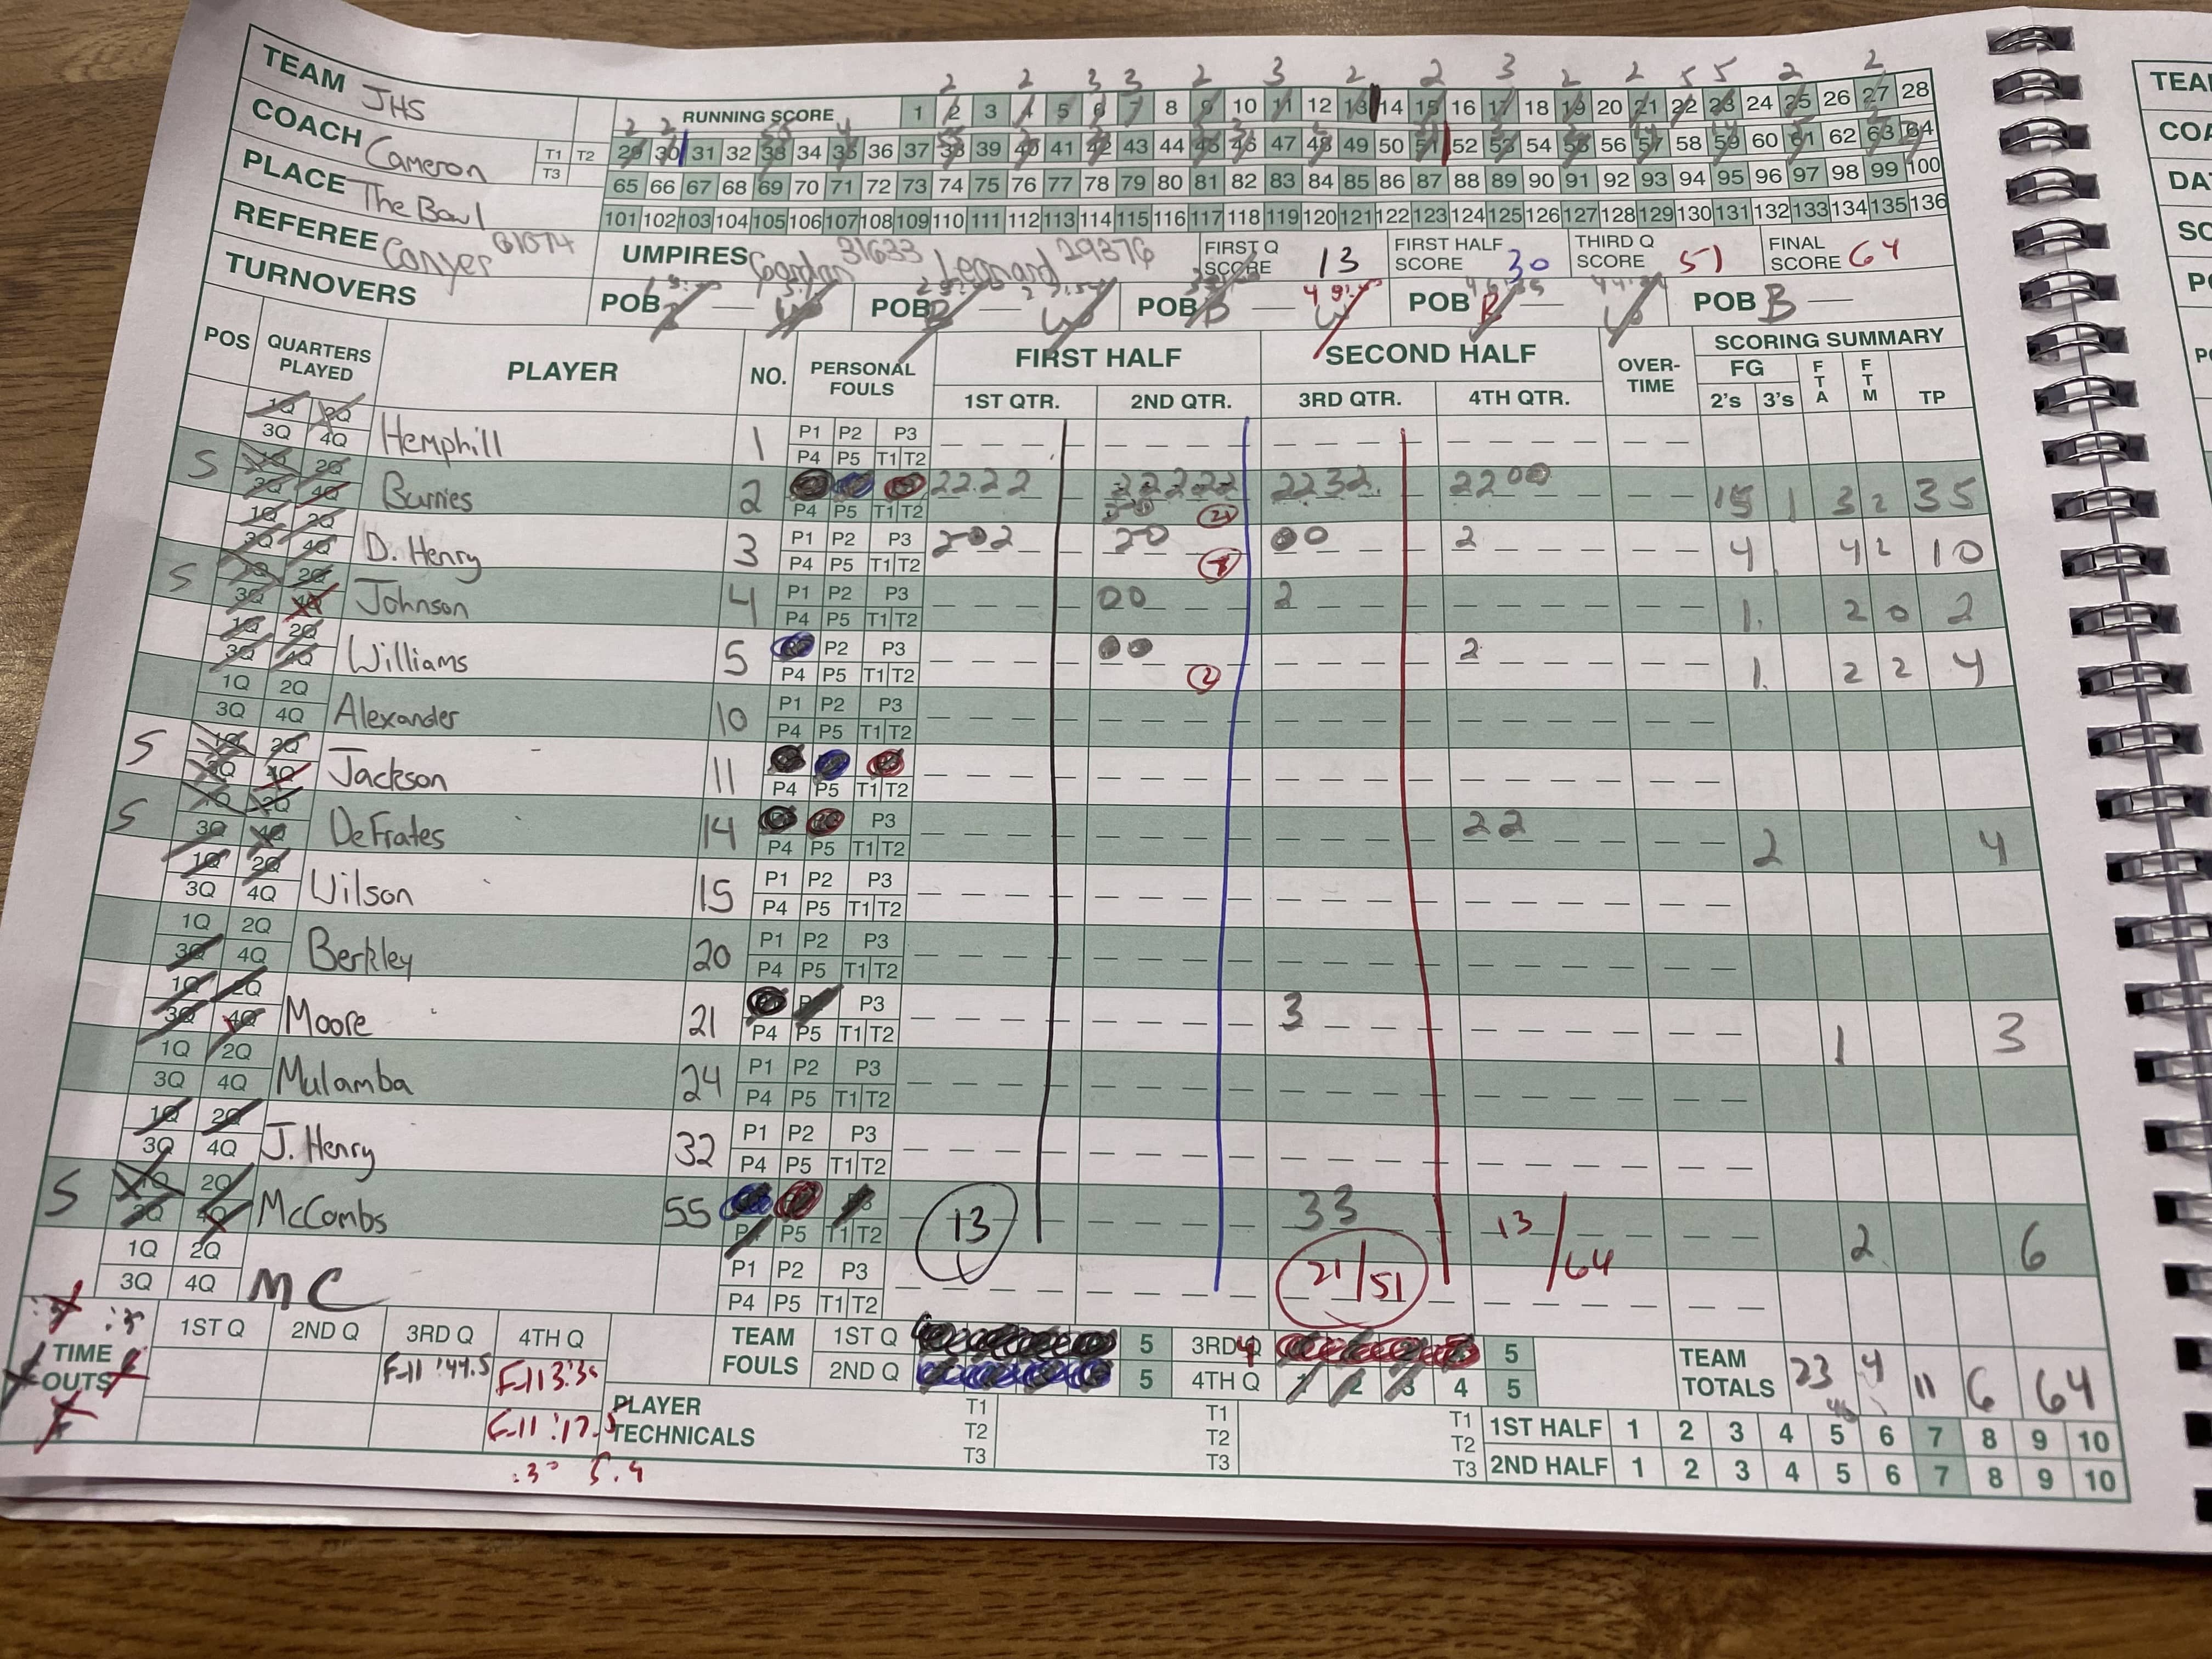 TEAM JHS
COACH Cameron
T1 T2
T3
PLACE The Bowl
REFEREE Conyer
TURNOVERS
2 2 3 3 2 3 2 2 3 2 2 5 5 2 2
RUNNING SCORE 1 2 3 4 5 6 7 8 9 10 11 12 13 14 15 16 17 18 19 20 21 22 23 24 25 26 27 28
29 30 31 32 33 34 35 36 37 38 39 40 41 42 43 44 45 46 47 48 49 50 51 52 53 54 55 56 57 58 59 60 61 62 63 64
65 66 67 68 69 70 71 72 73 74 75 76 77 78 79 80 81 82 83 84 85 86 87 88 89 90 91 92 93 94 95 96 97 98 99 100
101 102 103 104 105 106 107 108 109 110 111 112 113 114 115 116 117 118 119 120 121 122 123 124 125 126 127 128 129 130 131 132 133 134 135 136
UMPIRES 31633 Leonard 29376
FIRST Q SCORE 13
FIRST HALF SCORE 30
THIRD Q SCORE 51
FINAL SCORE 64
POB — POB — POB — POB — POB B —
POS QUARTERS PLAYED PLAYER NO. PERSONAL FOULS FIRST HALF SECOND HALF OVER-TIME SCORING SUMMARY
1ST QTR. 2ND QTR. 3RD QTR. 4TH QTR. FG 2's 3's FTA FTM TP
1Q 2Q 3Q 4Q Hemphill 1 P1 P2 P3 P4 P5 T1 T2
S 1Q 2Q 3Q 4Q Burries 2 P4 P5 T1 T2 2222 22222 2 2232 2200 15 1 3 2 35
1Q 2Q 3Q 4Q D. Henry 3 P1 P2 P3 P4 P5 T1 T2 202 20 00 2 4 4 2 10
S 1Q 2Q 3Q 4Q Johnson 4 P1 P2 P3 P4 P5 T1 T2 00 2 1 2 0 2
1Q 2Q 3Q 4Q Williams 5 P2 P3 P4 P5 T1 T2 00 2 2 1 2 2 4
1Q 2Q 3Q 4Q Alexander 10 P1 P2 P3 P4 P5 T1 T2
S 1Q 2Q 3Q 4Q Jackson 11 P4 P5 T1 T2
S 1Q 2Q 3Q 4Q DeFrates 14 P3 P4 P5 T1 T2 22 2 4
1Q 2Q 3Q 4Q Wilson 15 P1 P2 P3 P4 P5 T1 T2
1Q 2Q 3Q 4Q Berkley 20 P1 P2 P3 P4 P5 T1 T2
1Q 2Q 3Q 4Q Moore 21 P3 P4 P5 T1 T2 3 1 3
1Q 2Q 3Q 4Q Mulamba 24 P1 P2 P3 P4 P5 T1 T2
1Q 2Q 3Q 4Q J. Henry 32 P1 P2 P3 P4 P5 T1 T2
S 1Q 2Q 3Q 4Q McCombs 55 P5 T1 T2 13 33 13/64 2 6
1Q 2Q 3Q 4Q MC P1 P2 P3 P4 P5 T1 T2 21/51
TIME OUTS 1ST Q 2ND Q 3RD Q 4TH Q
F-11 :44.5 F-11 3:30
F-11 :17.5
:30 5.4
TEAM FOULS 1ST Q 5 3RD Q 5
2ND Q 5 4TH Q 1 2 3 4 5
TEAM TOTALS 23 4 11 6 64
46
PLAYER TECHNICALS T1 T2 T3 T1 T2 T3 T1 T2 T3
1ST HALF 1 2 3 4 5 6 7 8 9 10
2ND HALF 1 2 3 4 5 6 7 8 9 10
TEA
COA
DA
SC